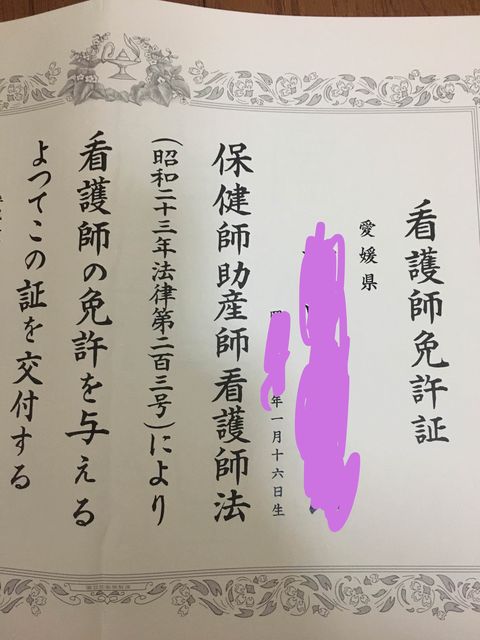 看護師免許証
愛媛県
年一月十六日生
保健師助産師看護師法
(昭和二十三年法律第二百三号)により
看護師の免許を与える
よつてこの証を交付する